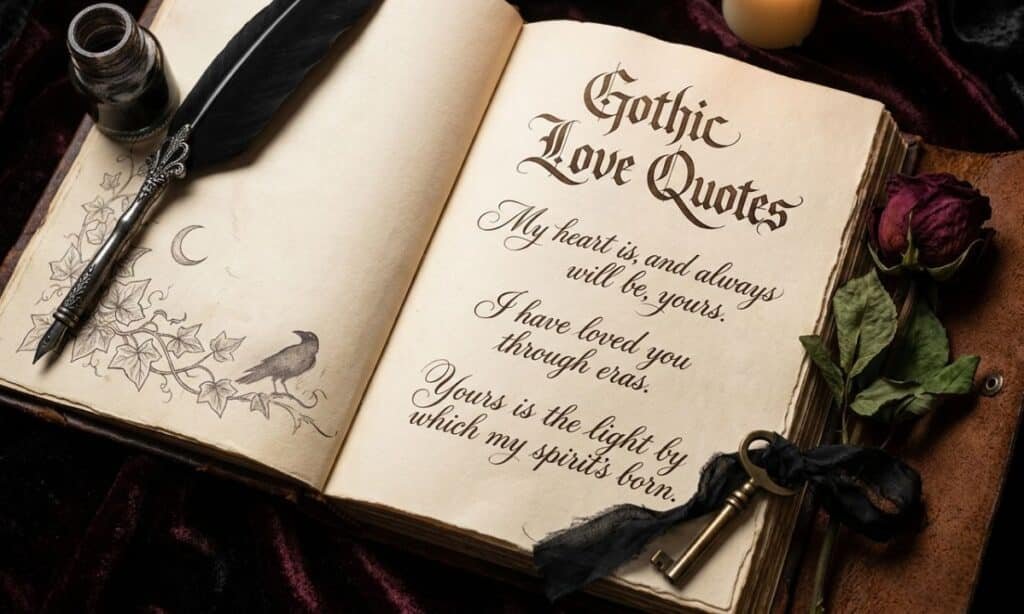 Gothic
Love Quotes
My heart is, and always
will be, yours.
I have loved you
through eras.
Yours is the light by
which my spirit's born.